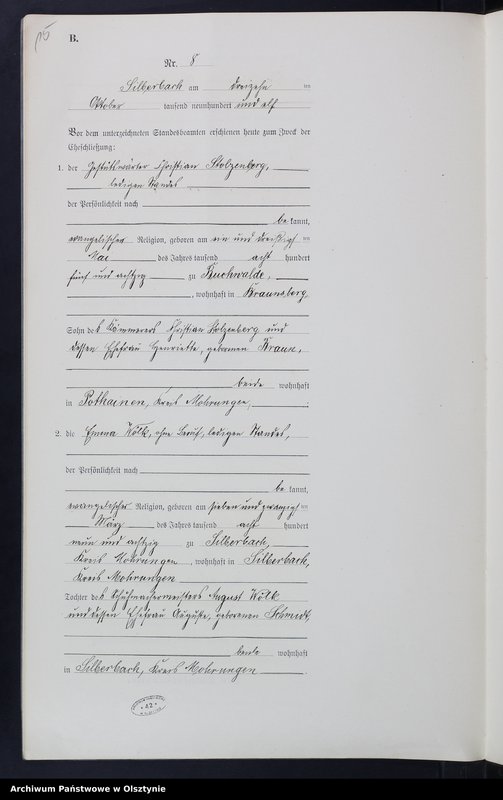 B.
Nr. 8
Silberbach am dreizehn ten
Oktober tausend neunhundert und elf
Vor dem unterzeichneten Standesbeamten erschienen heute zum Zweck der
Eheschließung:
1. der Gestütswärter Christian Stolzenberg,
ledigen Standes
der Persönlichkeit nach
be kannt,
evangelischer Religion, geboren am ein und dreißigsten
Mai des Jahres tausend acht hundert
fünf und achtzig zu Buchwalde,
, wohnhaft in Braunsberg,
Sohn des Kämmerers Christian Stolzenberg und
dessen Ehefrau Henriette, geborenen Braun,
beide wohnhaft
in Pothainen, Kreis Mohrungen,
2. die Emma Kölk, ohne Beruf, ledigen Standes,
der Persönlichkeit nach
be kannt,
evangelischer Religion, geboren am sieben und zwanzigsten
März des Jahres tausend acht hundert
neun und achtzig zu Silberbach,
Kreis Mohrungen, wohnhaft in Silberbach,
Kreis Mohrungen
Tochter des Schuhmachermeisters August Kölk
und dessen Ehefrau Auguste, geborenen Schmidt,
beide wohnhaft
in Silberbach, Kreis Mohrungen.
42
Archiwum Państwowe w Olsztynie